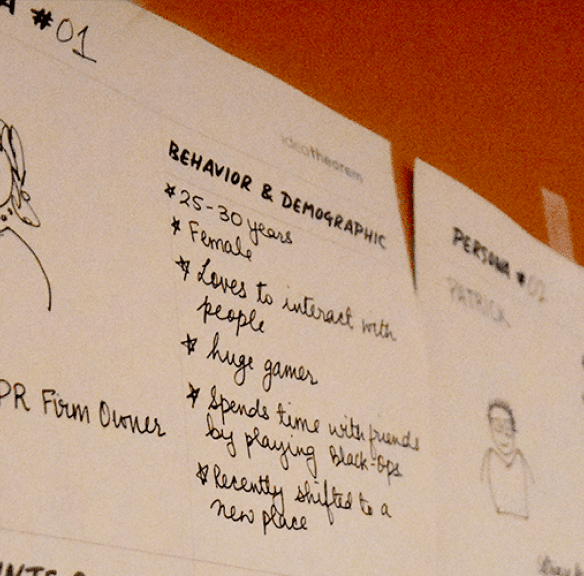 #01
ideatheorem
BEHAVIOR & DEMOGRAPHIC
* 25-30 years
* Female
* Loves to interact with
people
* huge gamer
* Spends time with friends
by playing Black-Ops
* Recently shifted to a
new place
PR Firm Owner
PERSONA #02
PATRICK